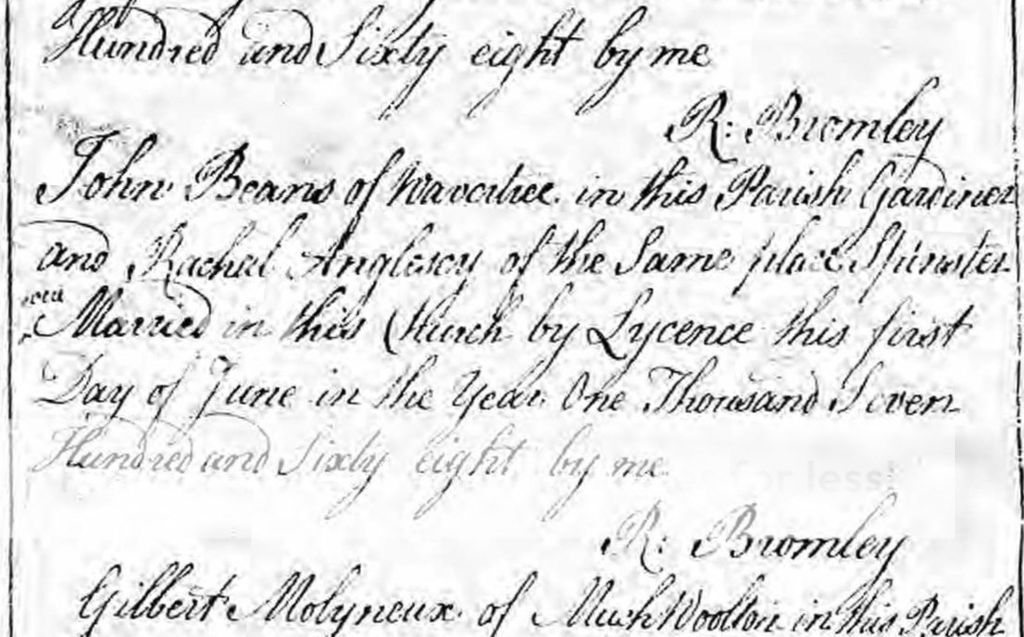 Hundred and Sixty eight by me
R: Bromley
John Beans of Wavertree in this Parish Gardiner
and Rachel Anglesey of the Same place Spinster
were
Married in this Church by Lycence this first
Day of June in the Year One Thousand Seven
Hundred and Sixty eight by me
for less!
R: Bromley
Gilbert Molyneux of Much Woolton in this Parish